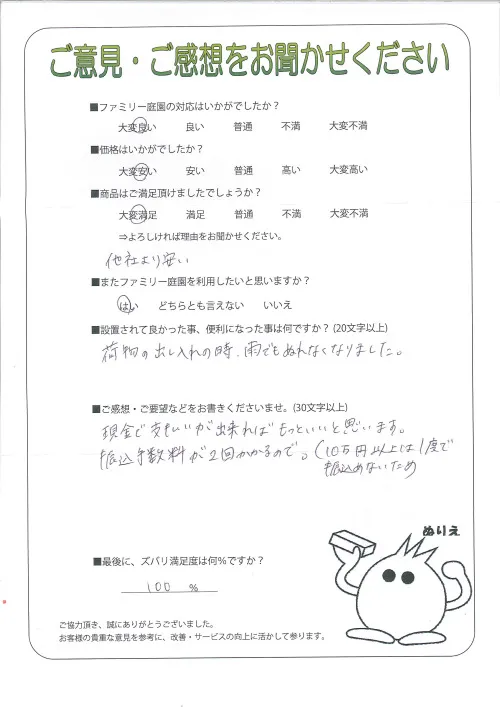 ご意見・ご感想をお聞かせください
■ファミリー庭園の対応はいかがでしたか？
大変良い 良い 普通 不満 大変不満
■価格はいかがでしたか？
大変安い 安い 普通 高い 大変高い
■商品はご満足頂けましたでしょうか？
大変満足 満足 普通 不満 大変不満
⇒よろしければ理由をお聞かせください。
他社より安い
■またファミリー庭園を利用したいと思いますか？
はい どちらとも言えない いいえ
■設置されて良かった事、便利になった事は何ですか？(20文字以上)
荷物の出し入れの時、雨でもぬれなくなりました。
■ご感想・ご要望などをお書きくださいませ。(30文字以上)
現金で支払いが出来ればもっといいと思います。
振込手数料が2回かかるので。(10万円以上は1度で
振込めないため
ぬりえ
■最後に、ズバリ満足度は何％ですか？
100 %
ご協力頂き、誠にありがとうございました。
お客様の貴重な意見を参考に、改善・サービスの向上に活かして参ります。